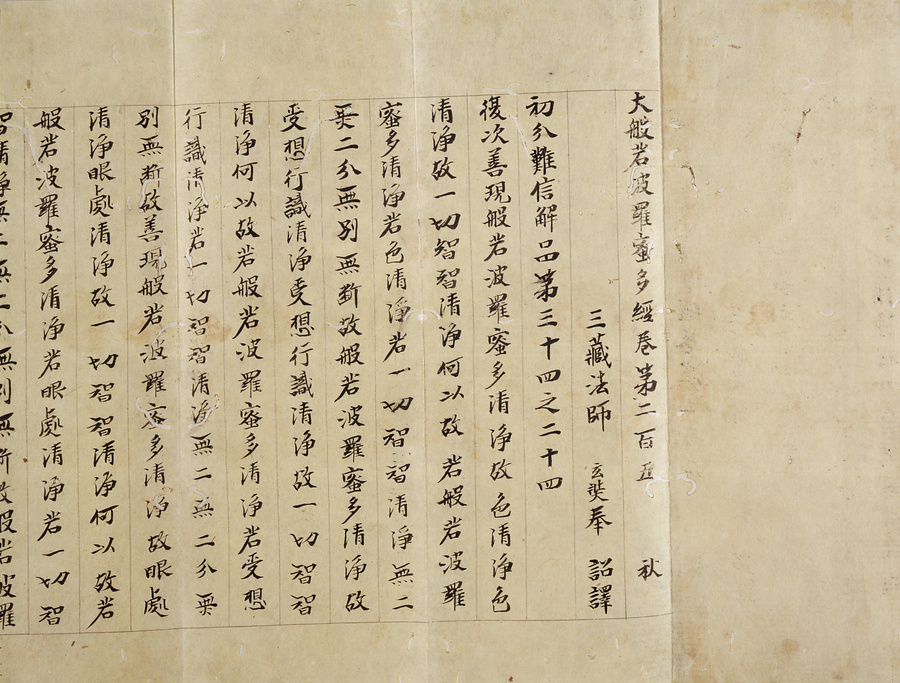 大般若波羅蜜多經卷第二百五 秋
三藏法師 玄奘奉 詔譯
初分難信解品第三十四之二十四
復次善現般若波羅蜜多清淨故色清淨色
清淨故一切智智清淨何以故若般若波羅
蜜多清淨若色清淨若一切智智清淨無二
無二分無別無斷故般若波羅蜜多清淨故
受想行識清淨受想行識清淨故一切智智
清淨何以故若般若波羅蜜多清淨若受想
行識清淨若一切智智清淨無二無二分無
別無斷故善現般若波羅蜜多清淨故眼處
清淨眼處清淨故一切智智清淨何以故若
般若波羅蜜多清淨若眼處清淨若一切智
智清淨無二無二分無別無斷故般若波羅